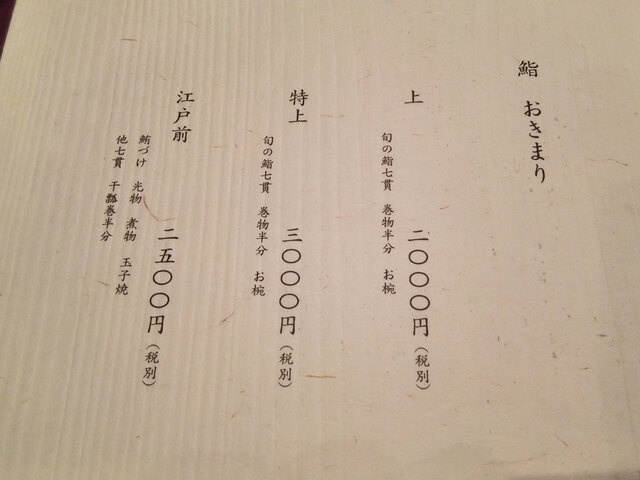 鮨 おきまり
上 二〇〇〇円(税別)
旬の鮨七貫 巻物半分 お椀
特上 三〇〇〇円(税別)
旬の鮨七貫 巻物半分 お椀
江戸前 二五〇〇円(税別)
鮪づけ 光物 煮物 玉子焼
他七貫 干瓢巻半分